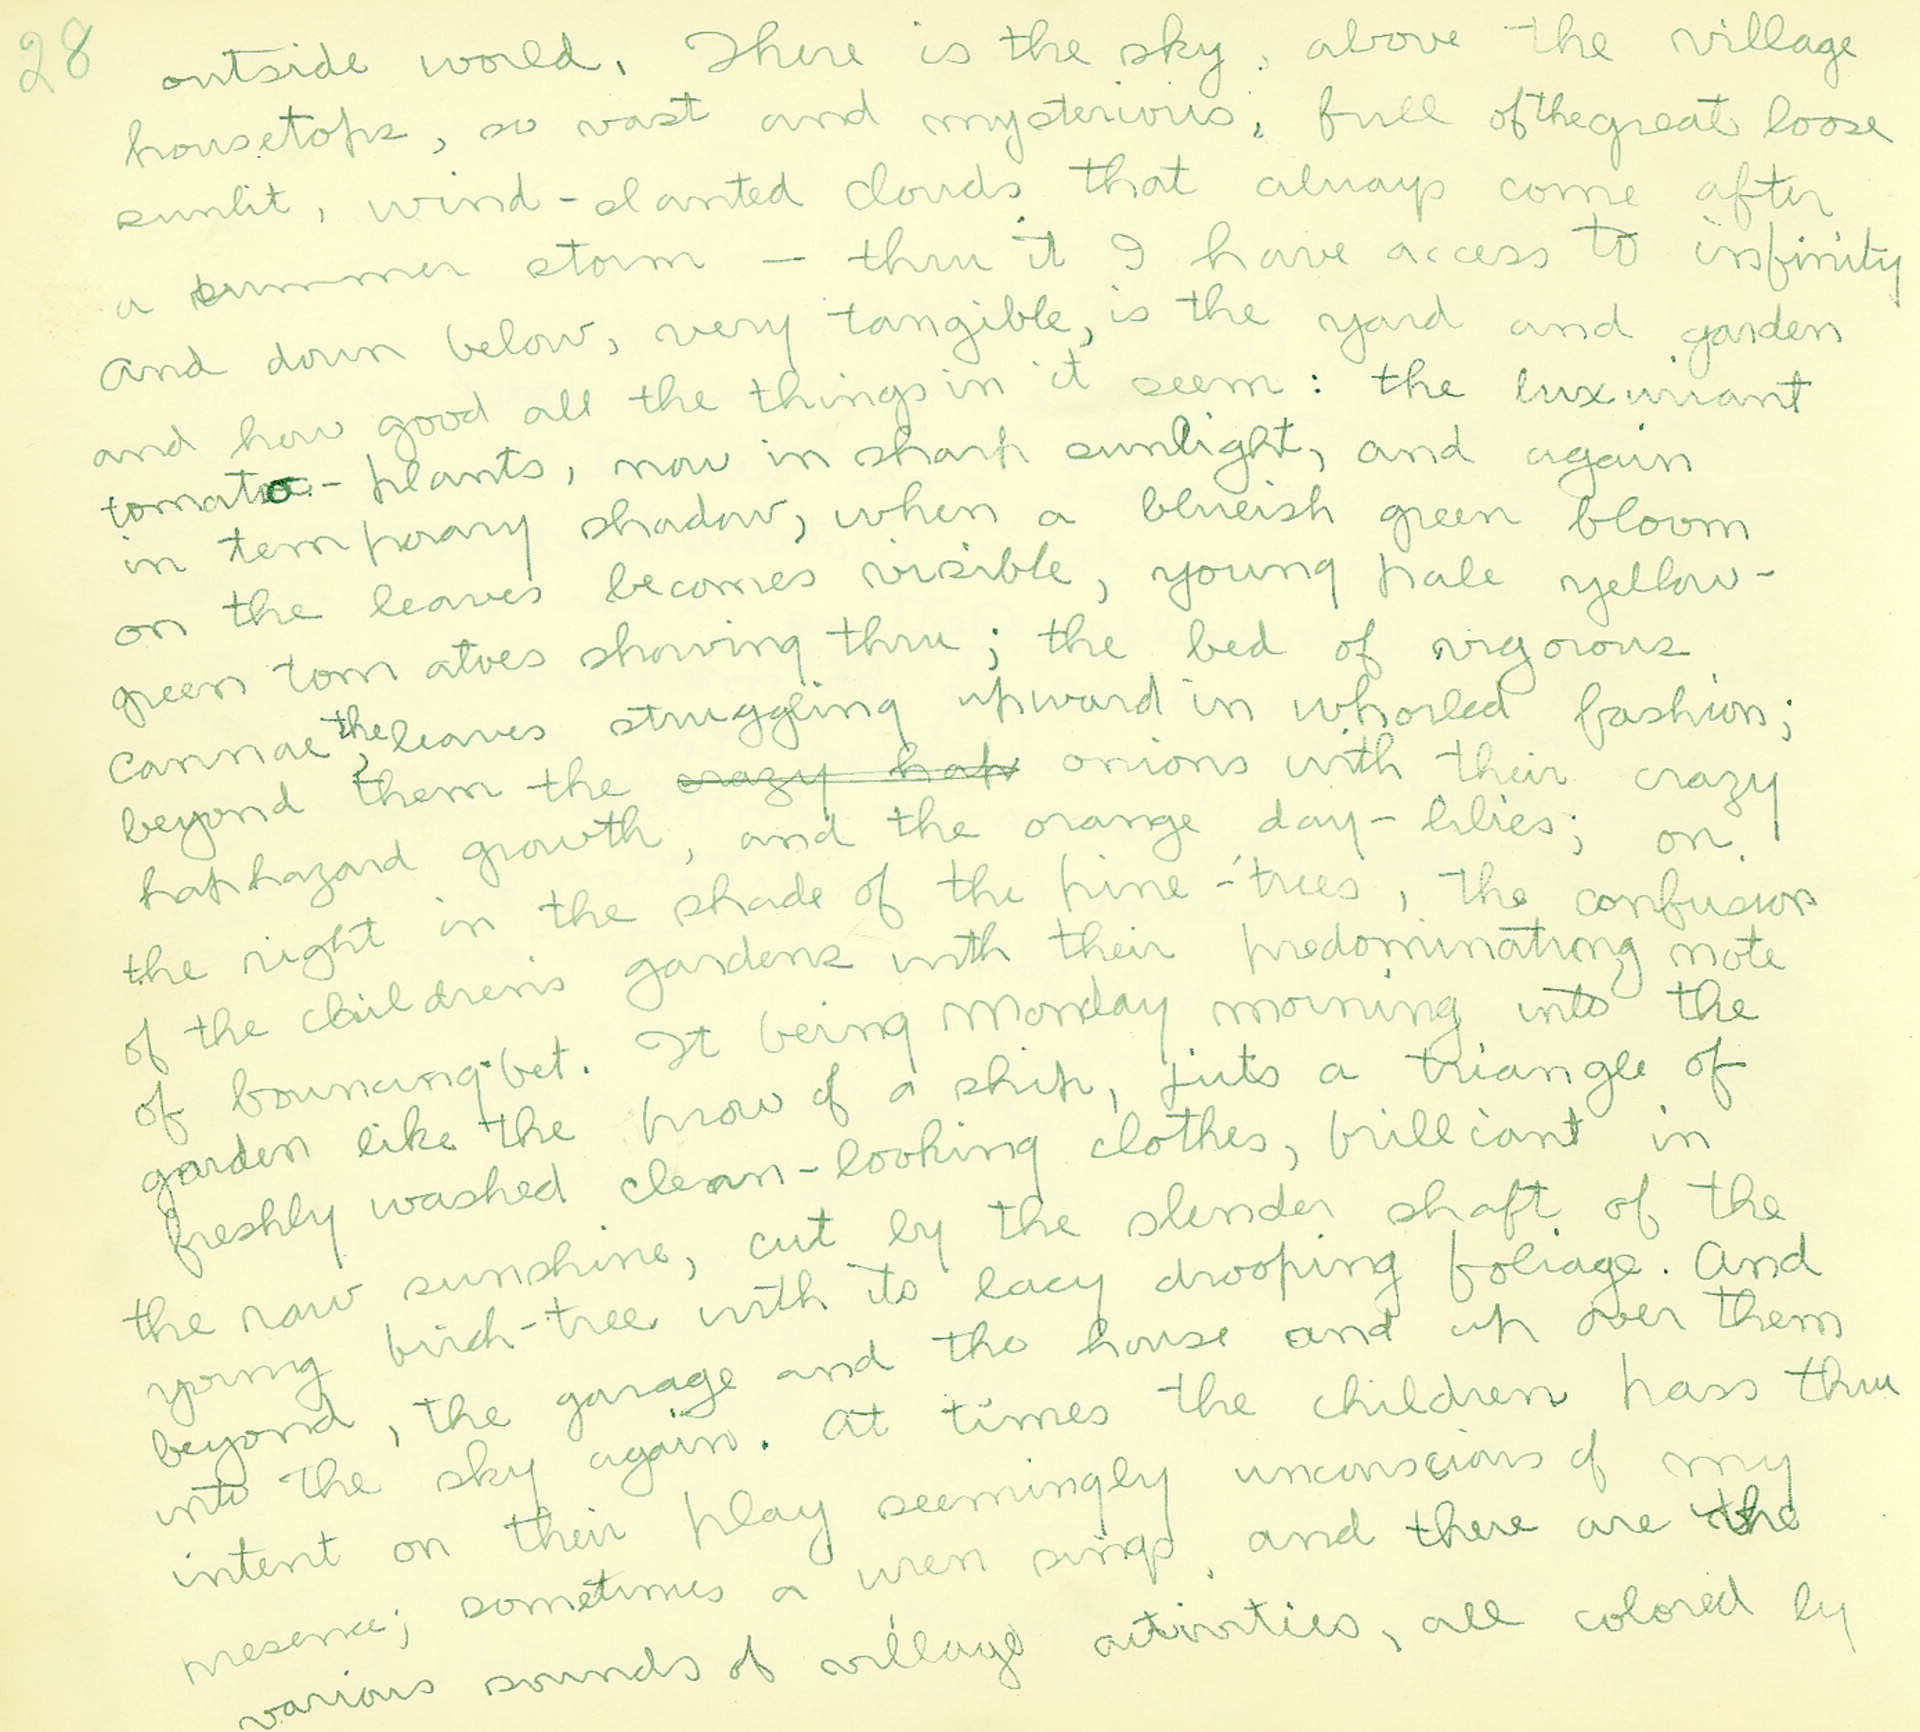 28
outside world. There is the sky, above the village
housetops, so vast and mysterious, full of the great loose
sunlit, wind-slanted clouds that always come after
a summer storm — thru it I have access to infinity
And down below, very tangible, is the yard and garden
and how good all the things in it seem: the luxuriant
tomato-plants, now in sharp sunlight, and again
in temporary shadow, when a blueish green bloom
on the leaves becomes visible, young pale yellow-
green tomatoes showing thru; the bed of vigorous
cannae, the leaves struggling upward in whorled fashion;
beyond them the crazy hap onions with their crazy
haphazard growth, and the orange day-lilies; on
the right in the shade of the pine-trees, the confusion
of the children's gardens with their predominating note
of bouncing-bet. It being Monday morning into the
garden like the prow of a ship, juts a triangle of
freshly washed clean-looking clothes, brilliant in
the raw sunshine, cut by the slender shaft of the
young birch-tree with its lacy drooping foliage. And
beyond, the garage and the house and up over them
into the sky again. At times the children pass thru
intent on their play seemingly unconscious of my
presence; sometimes a wren sings, and there are the
various sounds of village activities, all colored by